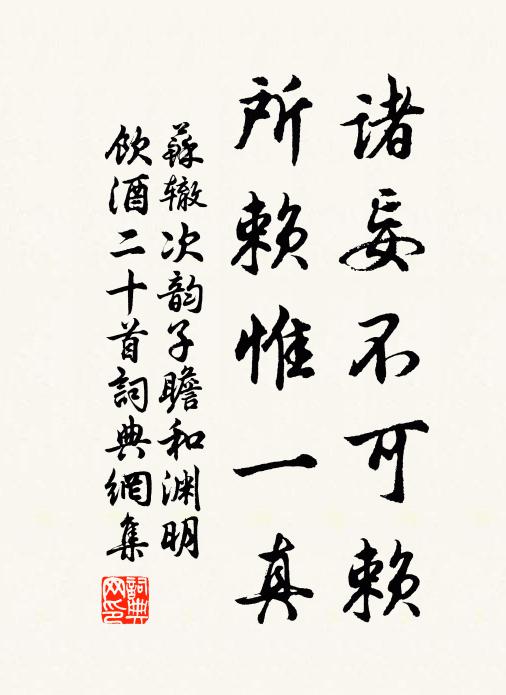 诸妄不可赖
所赖惟一真
蘇辙次韵子瞻和渊明
飲酒二十首詞典網集
詞典
网印